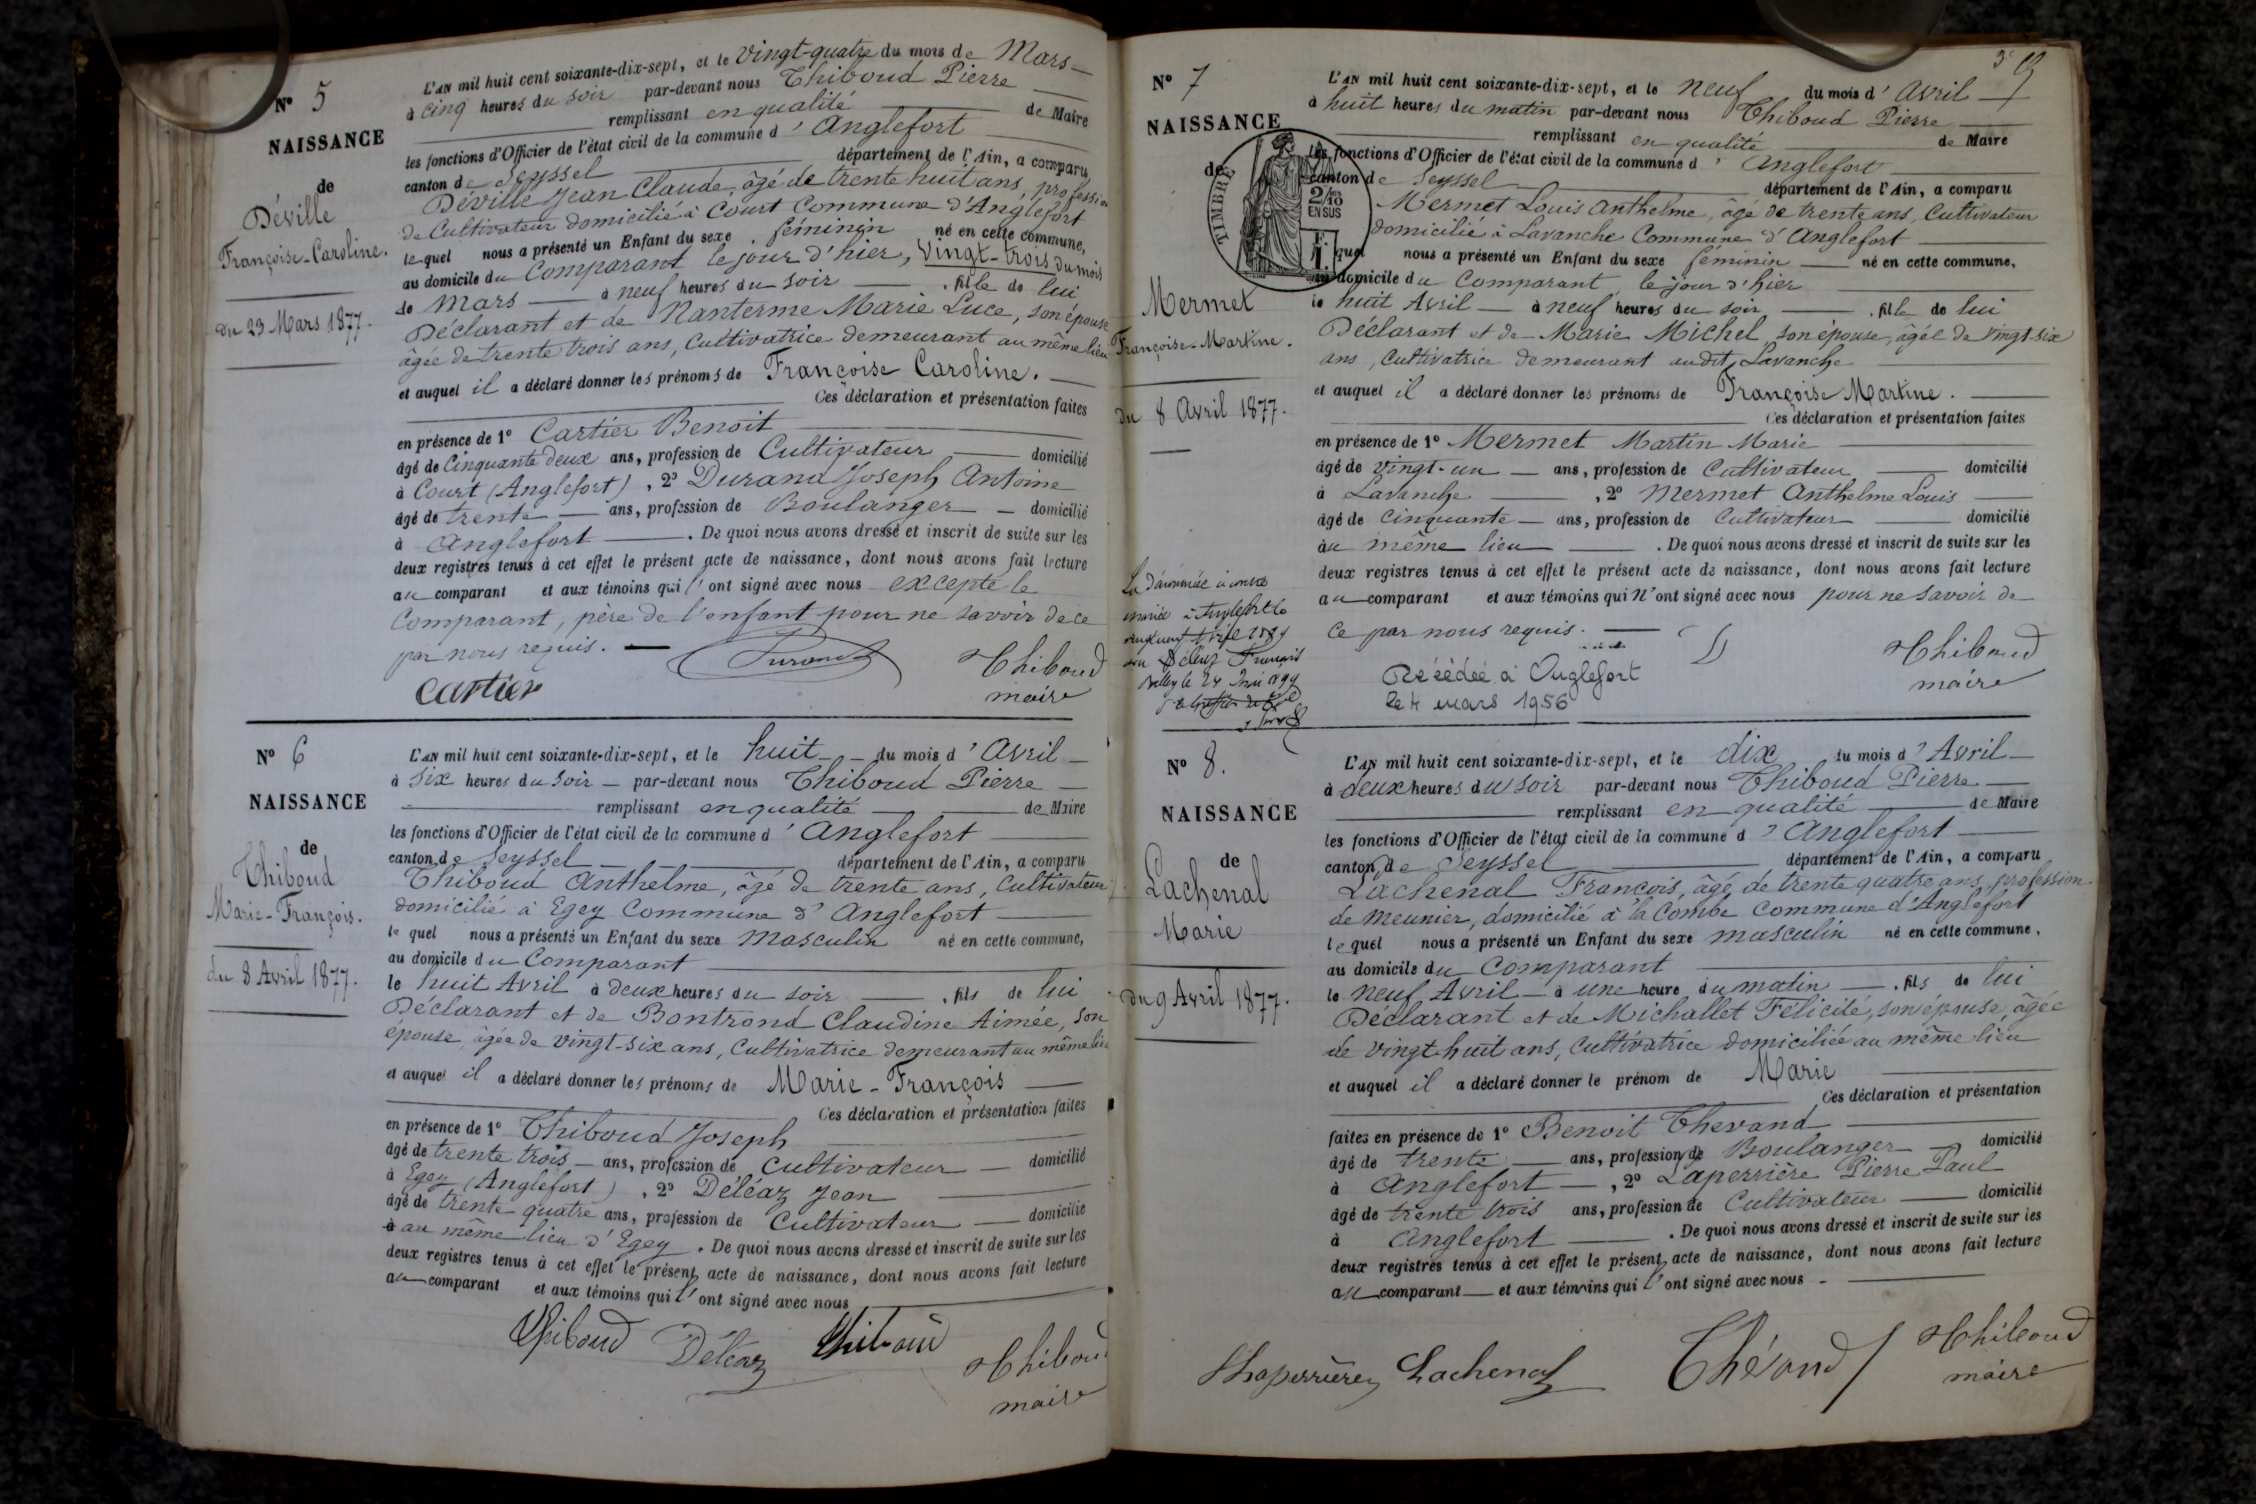 N° 5
NAISSANCE
de
Déville
Françoise-Caroline.
du 23 Mars 1877.
L'AN mil huit cent soixante-dix-sept, et le vingt-quatre du mois de Mars
à cinq heures du soir par-devant nous Thiboud Pierre
remplissant en qualité de Maire
les fonctions d'Officier de l'état civil de la commune d'Anglefort
canton de Seyssel département de l'Ain, a comparu
Déville Jean Claude, âgé de trente huit ans, profession
de Cultivateur domicilié à Court Commune d'Anglefort
lequel nous a présenté un Enfant du sexe féminin né en cette commune,
au domicile du Comparant le jour d'hier, vingt-trois du mois
de Mars à neuf heures du soir , fille de lui
Déclarant et de Nanterme Marie Luce, son épouse
âgée de trente trois ans, Cultivatrice demeurant au même lieu
et auquel il a déclaré donner les prénoms de Françoise Caroline.
Ces déclaration et présentation faites
en présence de 1° Cartier Benoit
âgé de Cinquante deux ans, profession de Cultivateur domicilié
à Court (Anglefort), 2° Durand Joseph Antoine
âgé de trente ans, profession de Boulanger domicilié
à Anglefort . De quoi nous avons dressé et inscrit de suite sur les
deux registres tenus à cet effet le présent acte de naissance, dont nous avons fait lecture
au comparant et aux témoins qui l'ont signé avec nous excepté le
Comparant, père de l'enfant pour ne savoir de ce
par nous requis.
Durand
Thiboud
Cartier
maire
N° 6
NAISSANCE
de
Thiboud
Marie-François.
du 8 Avril 1877.
L'AN mil huit cent soixante-dix-sept, et le huit du mois d'Avril
à six heures du soir par-devant nous Thiboud Pierre
remplissant en qualité de Maire
les fonctions d'Officier de l'état civil de la commune d'Anglefort
canton de Seyssel département de l'Ain, a comparu
Thiboud Anthelme, âgé de trente ans, Cultivateur
domicilié à Egey Commune d'Anglefort
lequel nous a présenté un Enfant du sexe Masculin né en cette commune,
au domicile du Comparant
le huit Avril à deux heures du soir , fils de lui
Déclarant et de Bontrond Claudine Aimée, son
épouse, âgée de vingt-six ans, Cultivatrice demeurant au même lieu
et auquel il a déclaré donner les prénoms de Marie-François
Ces déclaration et présentation faites
en présence de 1° Thiboud Joseph
âgé de trente trois ans, profession de Cultivateur domicilié
à Egey (Anglefort) , 2° Déléaz Jean
âgé de trente quatre ans, profession de Cultivateur domicilié
à au même lieu d'Egey . De quoi nous avons dressé et inscrit de suite sur les
deux registres tenus à cet effet le présent acte de naissance, dont nous avons fait lecture
au comparant et aux témoins qui l'ont signé avec nous
Thiboud Déléaz Thiboud Thiboud
maire
N° 7
NAISSANCE
de
TIMBRE
2/10
EN SUS
Mermet
Françoise-Martine.
du 8 Avril 1877.
L'AN mil huit cent soixante-dix-sept, et le neuf du mois d'Avril
à huit heures du matin par-devant nous Thiboud Pierre
remplissant en qualité de Maire
les fonctions d'Officier de l'état civil de la commune d'Anglefort
canton de Seyssel département de l'Ain, a comparu
Mermet Louis Anthelme, âgé de trente ans, Cultivateur
domicilié à Lavanche Commune d'Anglefort
lequel nous a présenté un Enfant du sexe féminin né en cette commune,
au domicile du Comparant, le jour d'hier
le huit Avril à neuf heures du soir , fille de lui
Déclarant et de Marie Michel son épouse, âgée de vingt-six
ans, Cultivatrice demeurant audit Lavanche
et auquel il a déclaré donner les prénoms de Françoise Martine.
Ces déclaration et présentation faites
en présence de 1° Mermet Martin Marie
âgé de vingt-un ans, profession de Cultivateur domicilié
à Lavanche , 2° Mermet Anthelme Louis
âgé de cinquante ans, profession de Cultivateur domicilié
au même lieu . De quoi nous avons dressé et inscrit de suite sur les
deux registres tenus à cet effet le présent acte de naissance, dont nous avons fait lecture
au comparant et aux témoins qui n'ont signé avec nous pour ne savoir de
ce par nous requis.
Thiboud
maire
Décédée à Anglefort
le 4 mars 1956
N° 8.
NAISSANCE
de
Lachenal
Marie
du 9 Avril 1877.
L'AN mil huit cent soixante-dix-sept, et le dix du mois d'Avril
à deux heures du soir par-devant nous Thiboud Pierre
remplissant en qualité de Maire
les fonctions d'Officier de l'état civil de la commune d'Anglefort
canton de Seyssel département de l'Ain, a comparu
Lachenal François, âgé de trente quatre ans, profession
de Meunier, domicilié à la Combe Commune d'Anglefort
lequel nous a présenté un Enfant du sexe masculin né en cette commune,
au domicile du Comparant
le neuf Avril à une heure du matin , fils de lui
Déclarant et de Michallet Félicité, son épouse, âgée
de vingt-huit ans, Cultivatrice domiciliée au même lieu
et auquel il a déclaré donner le prénom de Marie
Ces déclaration et présentation
faites en présence de 1° Benoit Thevand
âgé de trente ans, profession de Boulanger domicilié
à Anglefort , 2° Laperrière Pierre Paul
âgé de trente trois ans, profession de Cultivateur domicilié
à Anglefort . De quoi nous avons dressé et inscrit de suite sur les
deux registres tenus à cet effet le présent acte de naissance, dont nous avons fait lecture
au comparant et aux témoins qui l'ont signé avec nous
Lachenal Thévand Thiboud
maire